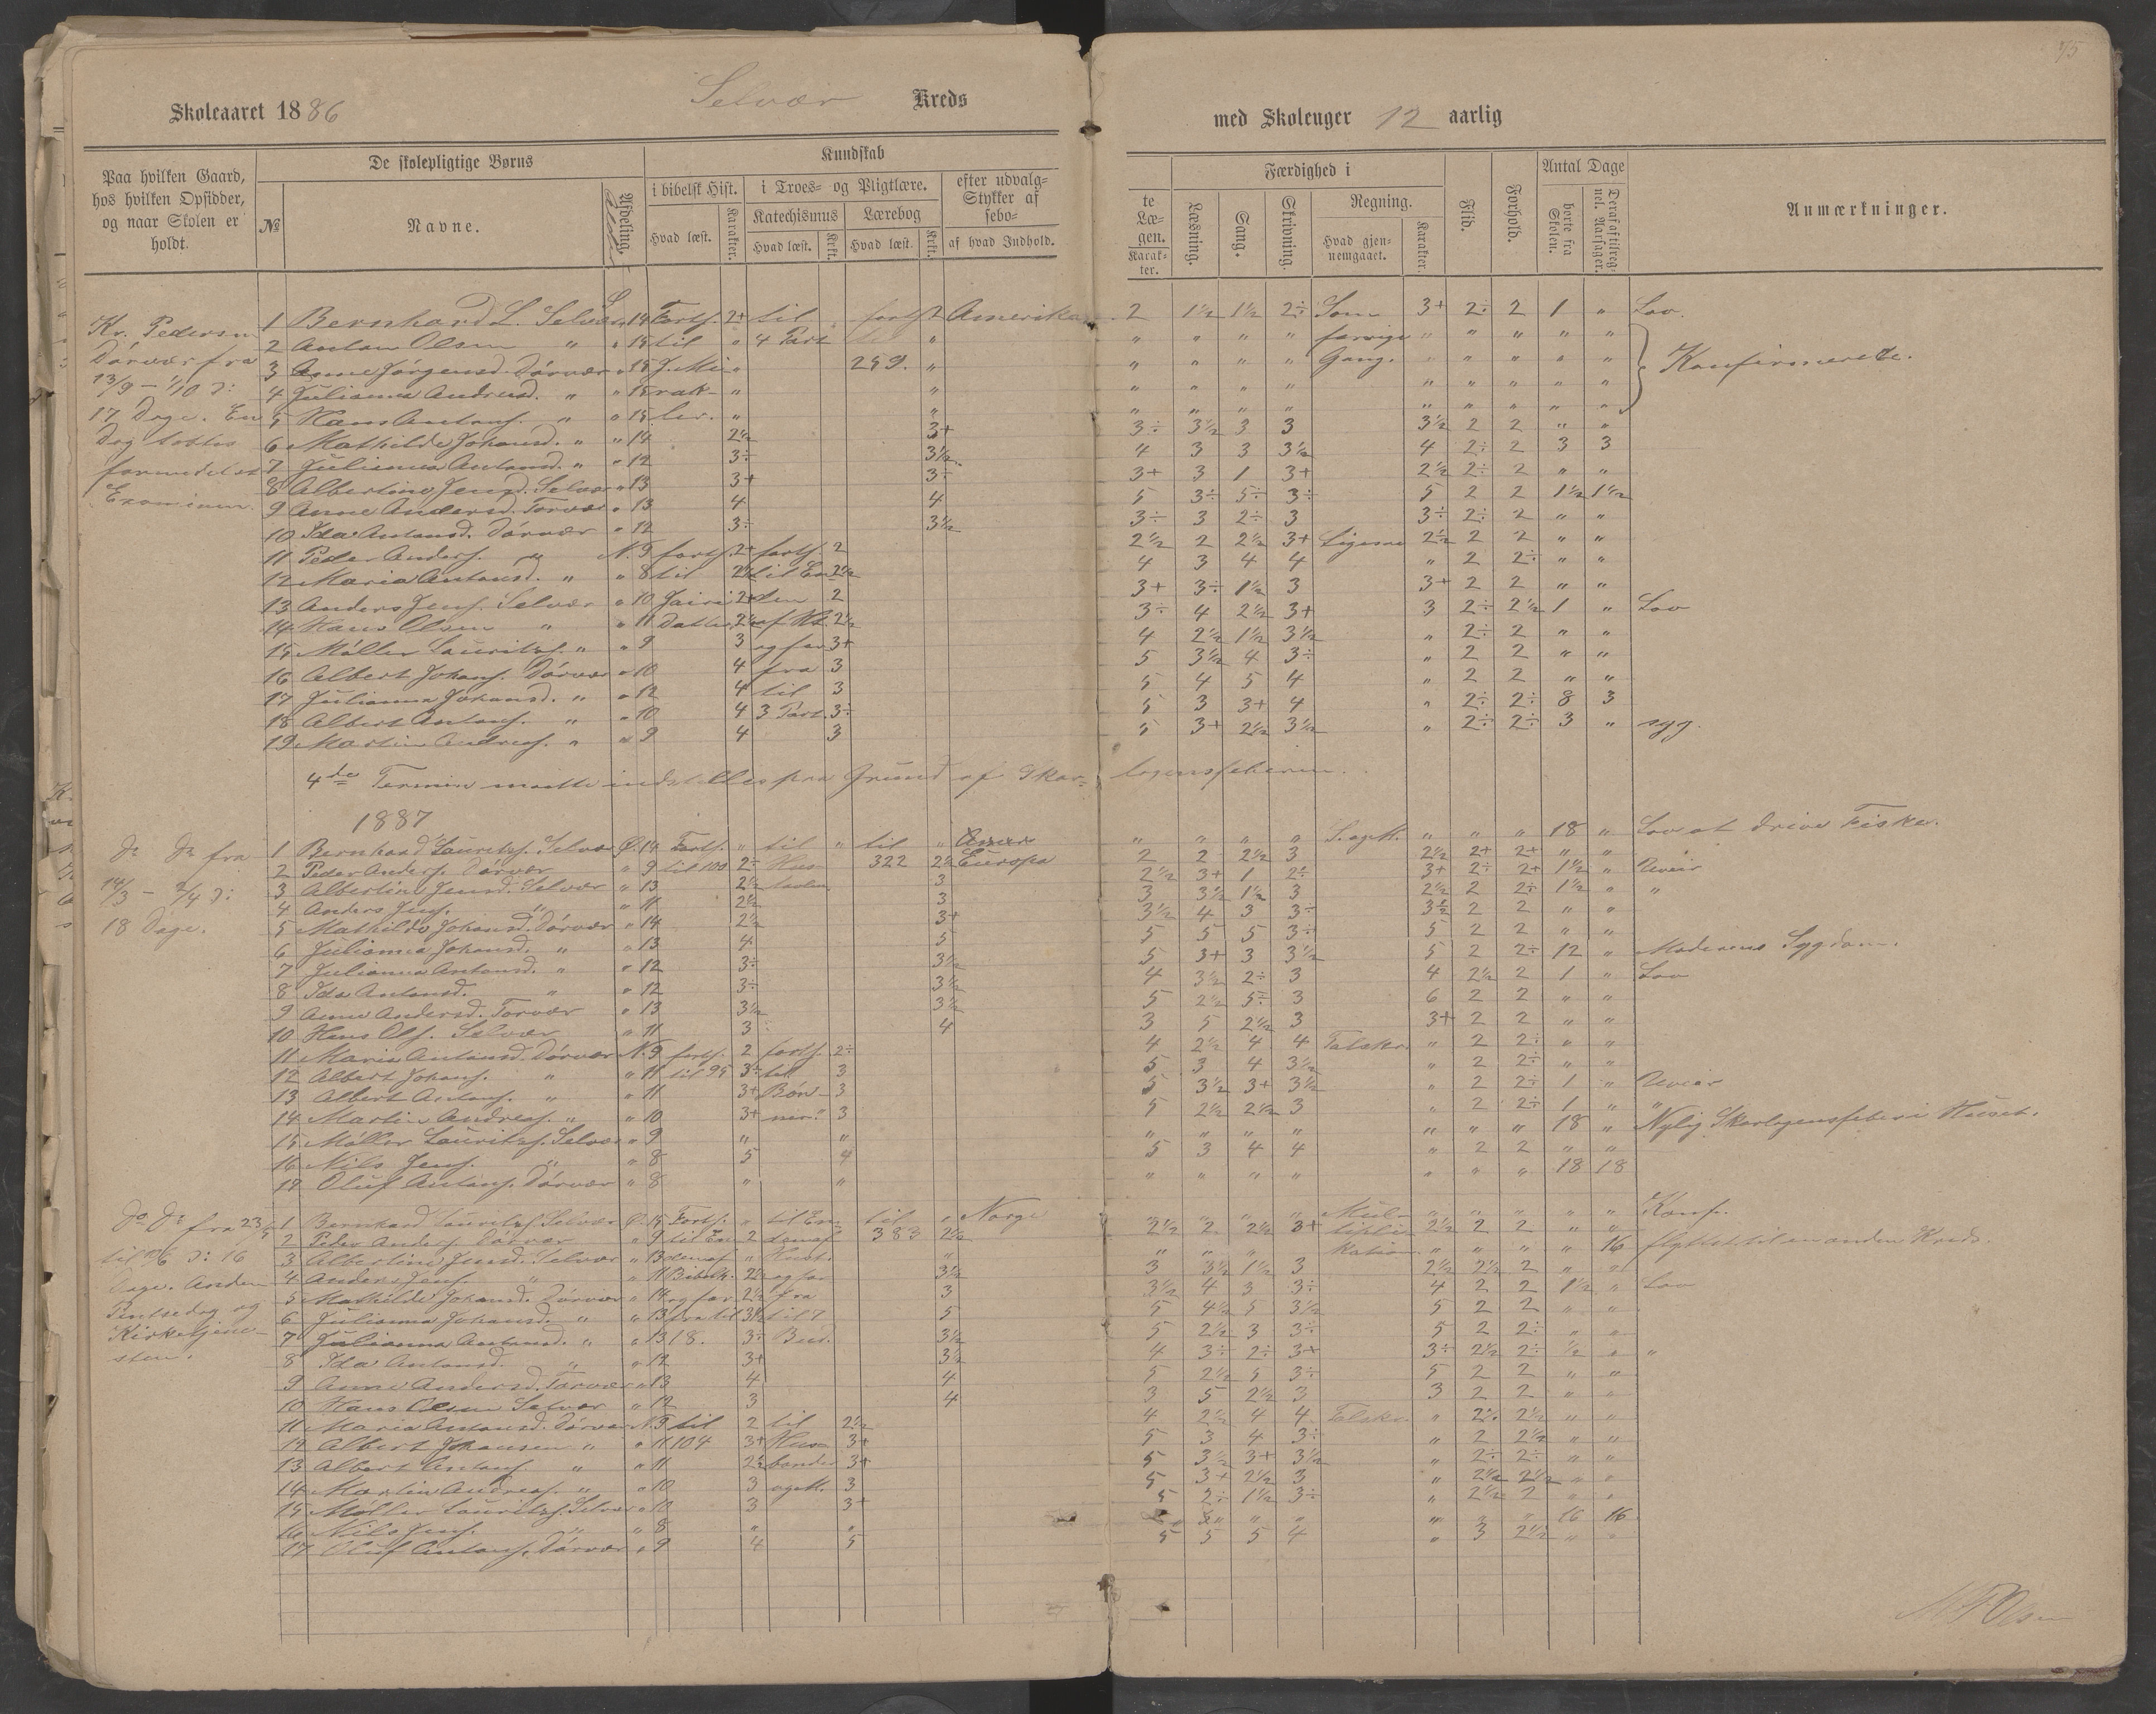 75
Skoleaaret 1886 Selvær Kreds med Skoleuger 12 aarlig
Paa hvilken Gaard, hos hvilken Opsidder, og naar Skolen er holdt.
De skolepligtige Børns
№ Navne. Afdeling. Alder
Kundskab
i bibelsk Hist. i Troes- og Pligtlære. efter udvalg- te
Stykker af Læ-
sebo- gen.
Katechismus Lærebog
Hvad læst. Karakter. Hvad læst. Krkt. Hvad læst. Krkt. af hvad Indhold. Karak-ter.
Færdighed i
Læsning. Sang. Skrivning. Regning.
Hvad gjen-nemgaaet. Karakter.
Flid. Forhold.
Antal Dage
borte fra Skolen. Deraf af tilreg-nel. Aarsager.
Anmærkninger.
Kr. Pedersen
Dørvær fra
13/9 – 1/10 ɔ:
17 Dage. En
Dag tabtes
formedelst
Examinen.
1 Bernhard L. Selvær 14 Forts. 2+ til forts 2 Amerika 2 1½ 1½ 2÷ Som 3+ 2÷ 2 1 " Lov.
2 Anton Olsen " " 15 til " 4 Part " " " " " forrige " " " " "
3 Anne Jørgensd. Dørvær " 15 J. Mi- " 259. " " " " " Gang. " " " " "
4 Julianna Andreasd. " " 15 rak- " " " " " " " " " " Konfirmerede.
5 Hans Antons. " " 15 ler. " " " " " " " " " " "
6 Mathilde Johansd. " " 14 2½ 3+ 3÷ 3½ 3 3 3½ 2 2 " "
7 Julianna Antonsd. " " 12 3÷ 3½ 4 3 3 3½ 4 2÷ 2 3 3
8 Albertine Jensd. Selvær " 13 3+ 3÷ 3+ 3 1 3+ 2½ 2÷ 2 " "
9 Anne Andersd. Torvær " 13 4 4 5 3÷ 5÷ 3÷ 5 2 2 1½ 1½
10 Ida Antonsd. Dørvær " 12 3÷ 3½ 3÷ 3 2÷ 3 3÷ 2÷ 2 " "
11 Peder Anders. " N. 9 forts. 2+ forts. 2 2½ 2 2½ 3+ Ligesaa 2½ 2 2 " "
12 Maria Antonsd. " " 8 til 2½ til En 2½ 4 3 4 4 " 2 2÷ " "
13 Anders Jens. Selvær " 10 Jairi 2+ 2 3+ 3÷ 1½ 3 3+ 2 2 " "
14 Hans Olsen " " 11 Datter 2½ af Kt. 2½ 3÷ 4 2½ 3+ 3 2÷ 2½ 1 " Lov
15 Møller Lauritzs. " " 9 3 og for 3+ 4 2½ 1½ 3½ " 2÷ 2 " "
16 Albert Johans. Dørvær " 10 4 fra 3 5 3½ 4 3÷ " 2 2 " "
17 Julianna Johansd. " " 12 4 til 3 5 4 5 4 " 2 2 " "
18 Albert Antons. " " 10 4 3 Part. 3÷ 5 3 3+ 4 " 2÷ 2÷ 8 3
19 Martin Andreas. " " 9 4 3 5 3+ 2½ 3½ " 2÷ 2÷ 3 " syg.
4de Termin maatte indstilles paa Grund af Skar- lagensfeberen.
1887
Do Do fra
14/3 – 2/4 ɔ:
18 Dage.
1 Bernhard Lauritzs. Selvær Ø. 14 Forts. " til " til " " " " " " " " 18 " Lov at drive Fiske.
2 Peder Anders. Dørvær " 9 til 100 2÷ Hus 322 2½ Europa 2 2 2½ 3 2½ 2+ 2+ " "
3 Albertine Jensd. Selvær " 13 2½ tavlen 3 2½ 3+ 1 2÷ 3+ 2÷ 2+ 1½ " Uveir
4 Anders Jens. " " 11 2½ 3 3 3½ 1½ 3 2½ 2 2÷ 1½ " "
5 Mathilde Johansd. Dørvær " 14 2½ 3+ 3½ 4 3 3÷ 3½ 2 2 " "
6 Julianna Johansd. " " 13 4 5 5 5 5 3÷ 5 2 2 " "
7 Julianna Antonsd. " " 12 3÷ 3½ 5 3+ 3 3½ 5 2 2÷ 12 " Moderens Sygdom.
8 Ida Antonsd. " " 12 3÷ 3½ 4 3½ 2÷ 3 4 2½ 2 1 " Lov
9 Anne Andersd. Torvær " 13 3½ 3½ 5 2½ 5÷ 3 6 2 2 " "
10 Hans Ols. Selvær " 11 3 4 3 5 2½ 3 3+ 2 2 " "
11 Maria Antonsd. Dørvær N. 9 forts. 2 forts. 2÷ 4 2½ 4 4 Talskr. " 2 2÷ " "
12 Albert Johans. " " 11 til 95 3÷ til 3 5 3 4 3½ " 2 2÷ " "
13 Albert Antons. " " 11 3+ Bøn- 3 5 3½ 3+ 3½ " 2 2÷ 1 " Uveir
14 Martin Andreas. " " 10 3+ ner." 3 5 2½ 2½ 3 " 2 2÷ 1 " "
15 Møller Lauritzs. Selvær " 9 " " " " " " " " " 18 " Nylig Skarlagensfeber i Huset.
16 Nils Jens. " " 8 5 4 5 3 4 4 " 2 2 " "
17 Oluf Antons. Dørvær " 8 " " " " " " " " " 18 18
Do Do fra 23/5
til ɔ: 16
Dage. Anden
Pintsedag og
Kirketjene-
sten.
1 Bernhard Lauritzs. Selvær Ø. 15 Forts. " til En- til " Norge " " " " Mul- " " " " " Konf.
2 Peder Anders. Dørvær " 9 til En- 2 383 2½ 2½ 2 2½ 3+ tipli- 2½ 2 2 " "
3 Albertine Jensd. Selvær " 13 " " " " " kation " " " " 16 flyttet til en anden Kreds.
4 Anders Jens. " " 11 Bibelh. 2½ og for 3½ 3 3½ 1½ 3 2½ 2½ 2 " "
5 Mathilde Johansd. Dørvær " 14 og for 2½ fra 3 3½ 4 3 3÷ 4 2 2 1½ " Lov
6 Julianna Johansd. " " 13 fra til 3½ til 7 5 5 4½ 5 3½ 5 2 2 " "
7 Julianna Antonsd. " " 13 18. 3÷ Bud. 3½ 5 2½ 3 3÷ 5 2 2÷ " "
8 Ida Antonsd. " " 12 3+ 3½ 4 3÷ 2÷ 3+ 3÷ 2½ 2÷ ½ " "
9 Anne Andersd. Torvær " 13 4 4 5 2½ 5 3÷ 5 2 2 " "
10 Hans Olsen Selvær " 12 3 4 3 5 2½ 3 3 2 2 " "
11 Maria Antonsd. Dørvær N. 9 til 2 til 2½ 4 2½ 4 4 Talskr. " 2½ 2½ " "
12 Albert Johansen " " 11 104 3+ Hus- 3+ 5 3 4 3÷ " 2 2½ " "
13 Albert Antons. " " 11 2½ 3+ 5 3½ 3+ 3½ " 2÷ 2÷ " "
14 Martin Andreas. " " 10 3 3 5 3+ 2½ 3 " 2½ 2½ " "
15 Møller Lauritzs. Selvær " 10 3 3+ 5 2÷ 1½ 3÷ " 2½ 2 " "
16 Nils Jens. " " 8 " " " " " " " " 16 16
17 Oluf Antons. Dørvær " 9 4 5 5 5 5 4 " 3 2½ " "